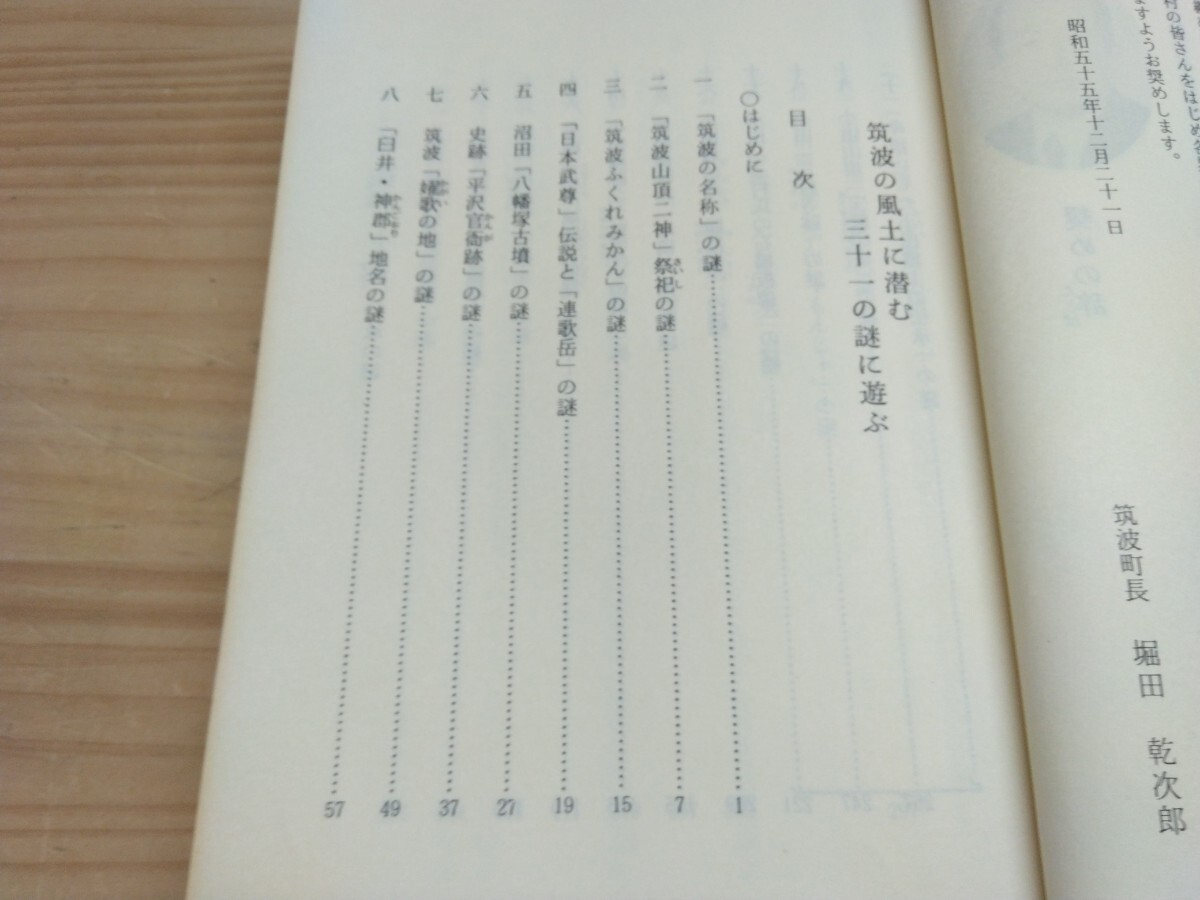 ますようお奨めします。
昭和五十五年十二月二十一日
筑波町長 堀田 乾次郎
筑波の風土に潜む
三十一の謎に遊ぶ
目次
〇はじめに
一 「筑波の名称」の謎……1
二 「筑波山頂二神」祭祀の謎……7
三 「筑波ふくれみかん」の謎……15
四 「日本武尊」伝説と「連歌岳」の謎……19
五 沼田「八幡塚古墳」の謎……27
六 史跡「平沢官衙跡」の謎……37
七 筑波「嬥歌の地」の謎……49
八 「臼井・神郡」地名の謎……57